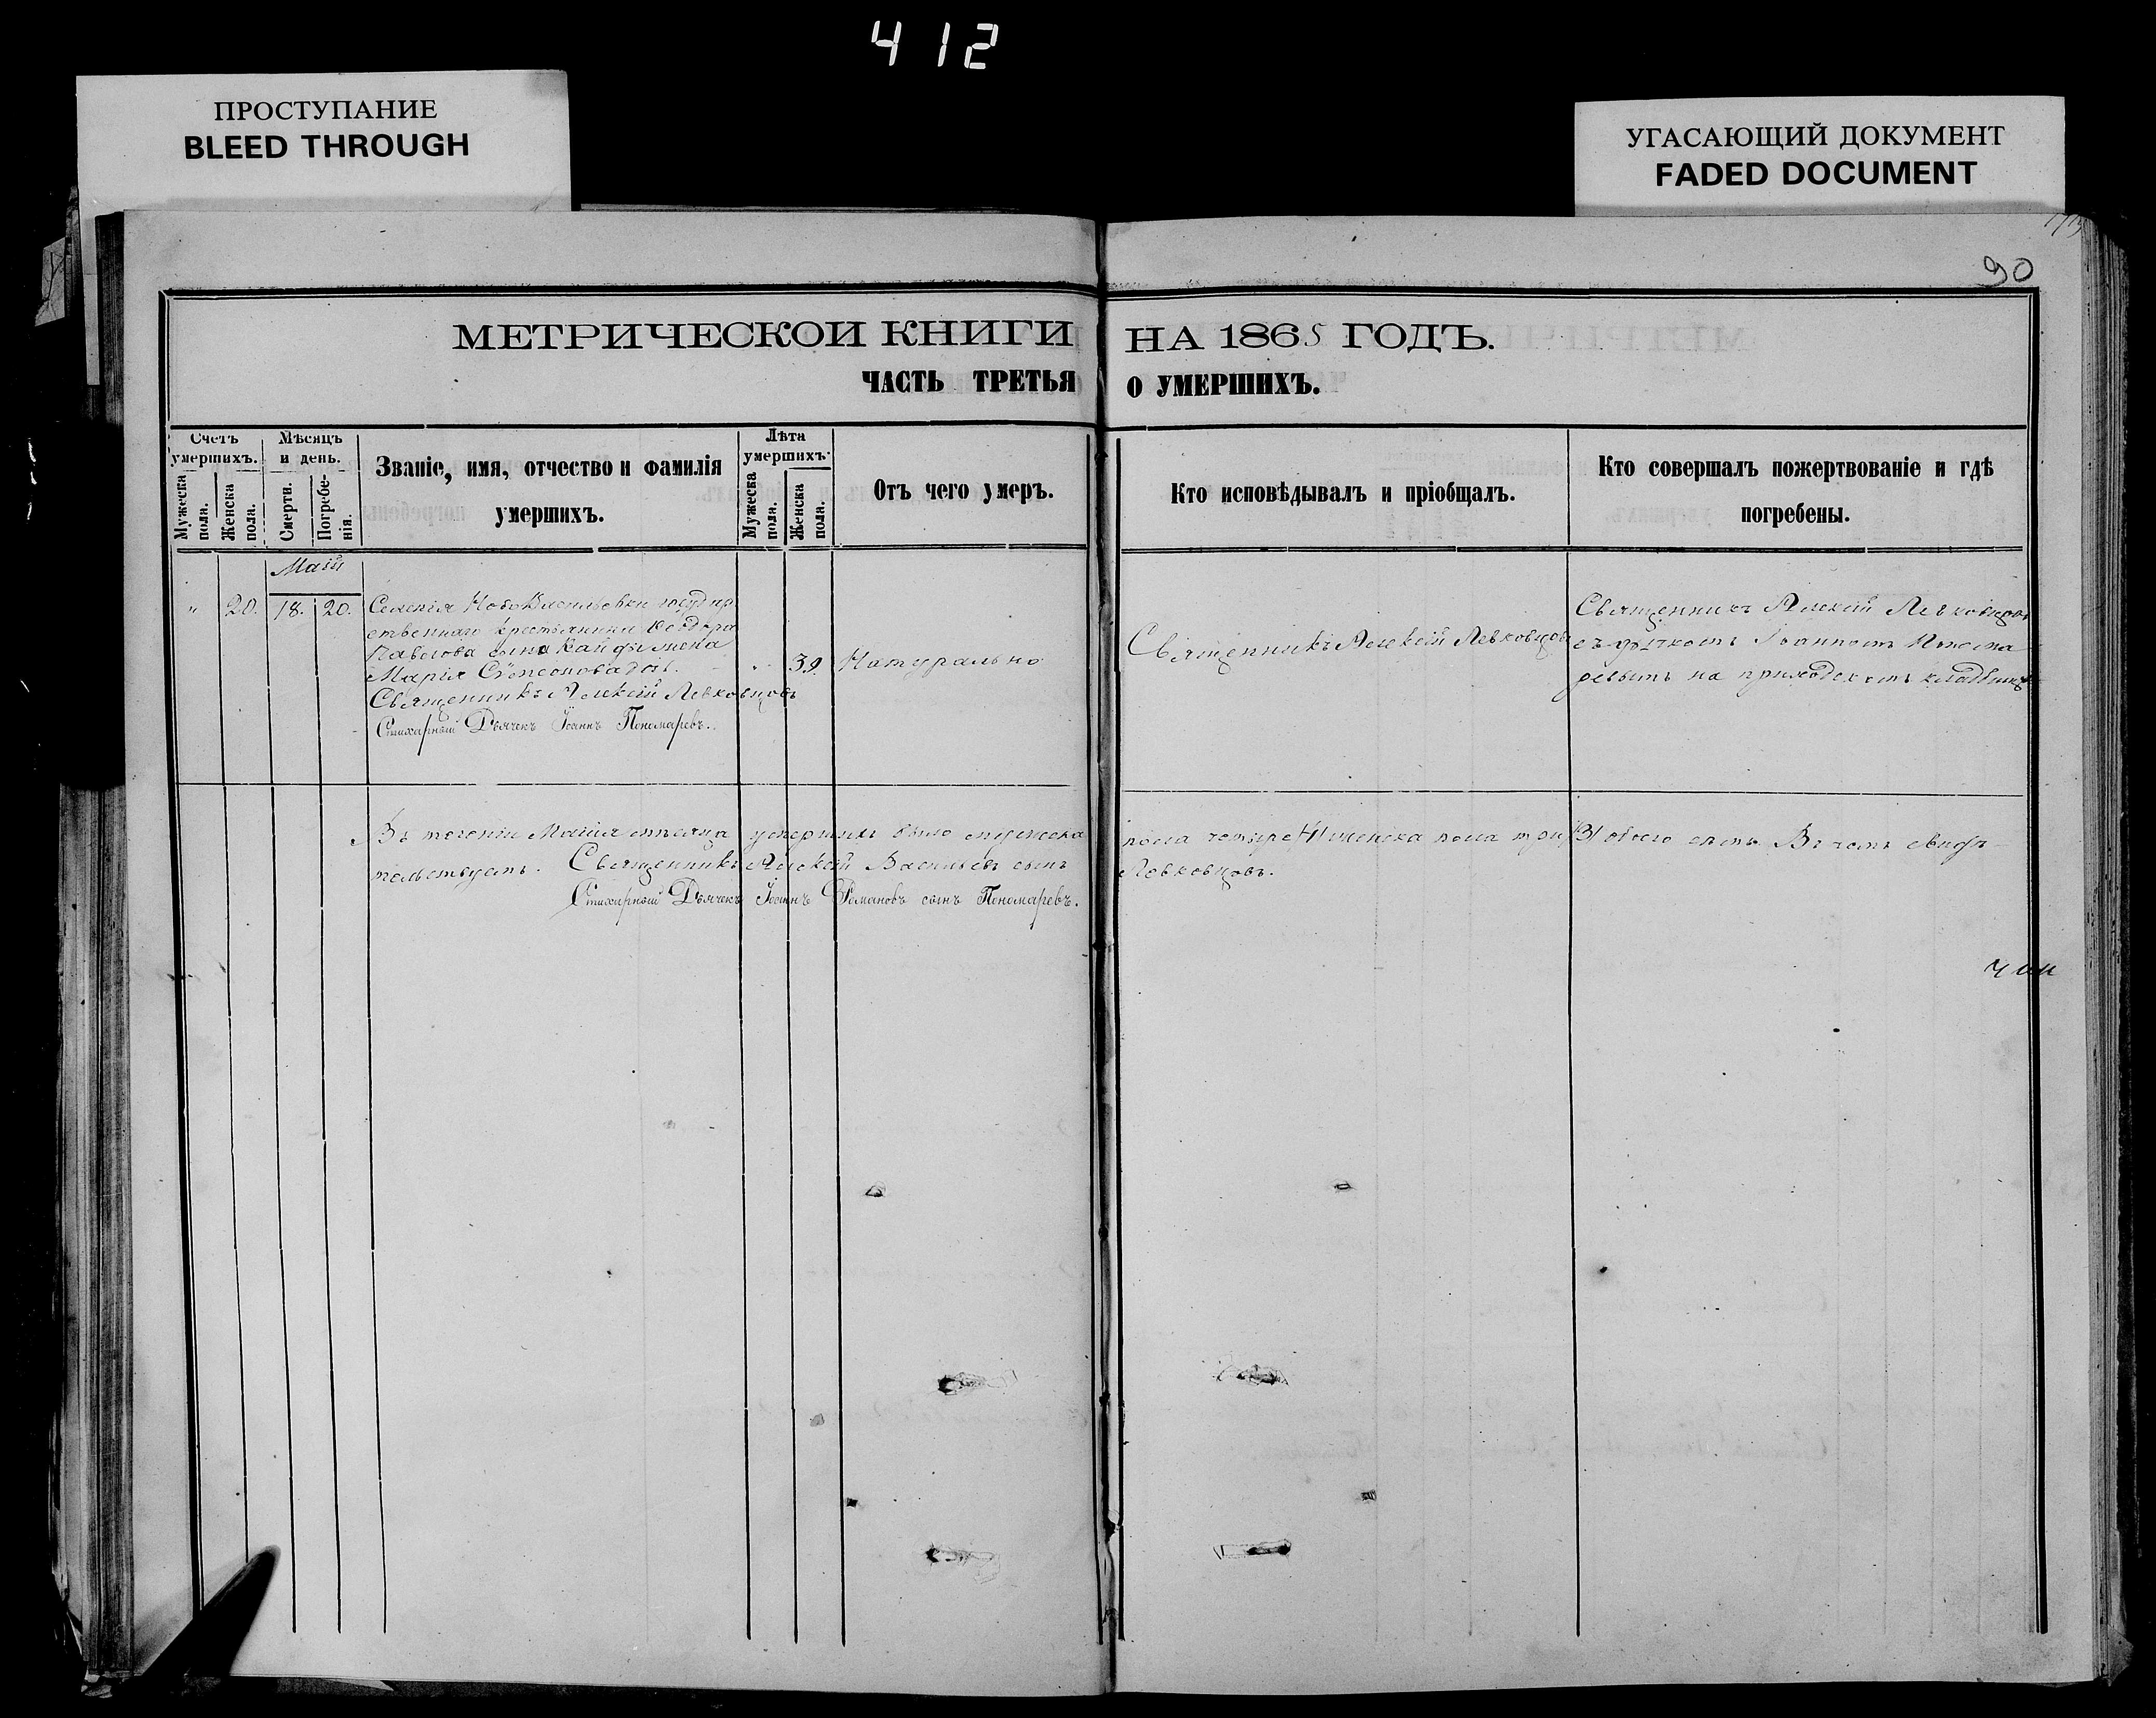 412
ПРОСТУПАНИЕ
BLEED THROUGH
УГАСАЮЩИЙ ДОКУМЕНТ
FADED DOCUMENT
90
МЕТРИЧЕСКОИ КНИГИ НА 1865 ГОДЪ.
ЧАСТЬ ТРЕТЬЯ О УМЕРШИХЪ.
Счетъ умершихъ.
Мужеска пола.
Женска пола.
Мѣсяцъ и день.
Смерти.
Погребенія.
Званіе, имя, отчество и фамилія
умершихъ.
Лѣта умершихъ:
Мужеска пола.
Женска пола.
Отъ чего умеръ.
Кто исповѣдывалъ и пріобщалъ.
Кто совершалъ пожертвованіе и гдѣ
погребены.
Маій
" 20. 18. 20.
Селенія НовоВасильевки государ
ственнаго крестьянина Ѳеодора
Павлова сына жена
Марія
Священникъ Алексій Левковцовъ
Стихарный Дьячекъ Іоаннъ Пономаревъ.
39.
Натурально
Священникъ Алексій Левковцовъ
Священникъ Алексій Левковцовъ
съ дьячкомъ Іоанномъ Понома
ревымъ на приходскомъ кладбищѣ
Въ теченіи Маія мѣсяца умершихъ было мужеска пола четыре /4/ женска пола три /3/ обоего семь. Въ чемъ свидѣ
тельствуемъ. Священникъ Алексій Васильевъ сынъ Левковцовъ.
Стихарный Дьячекъ Іоаннъ Романовъ сынъ Пономаревъ.